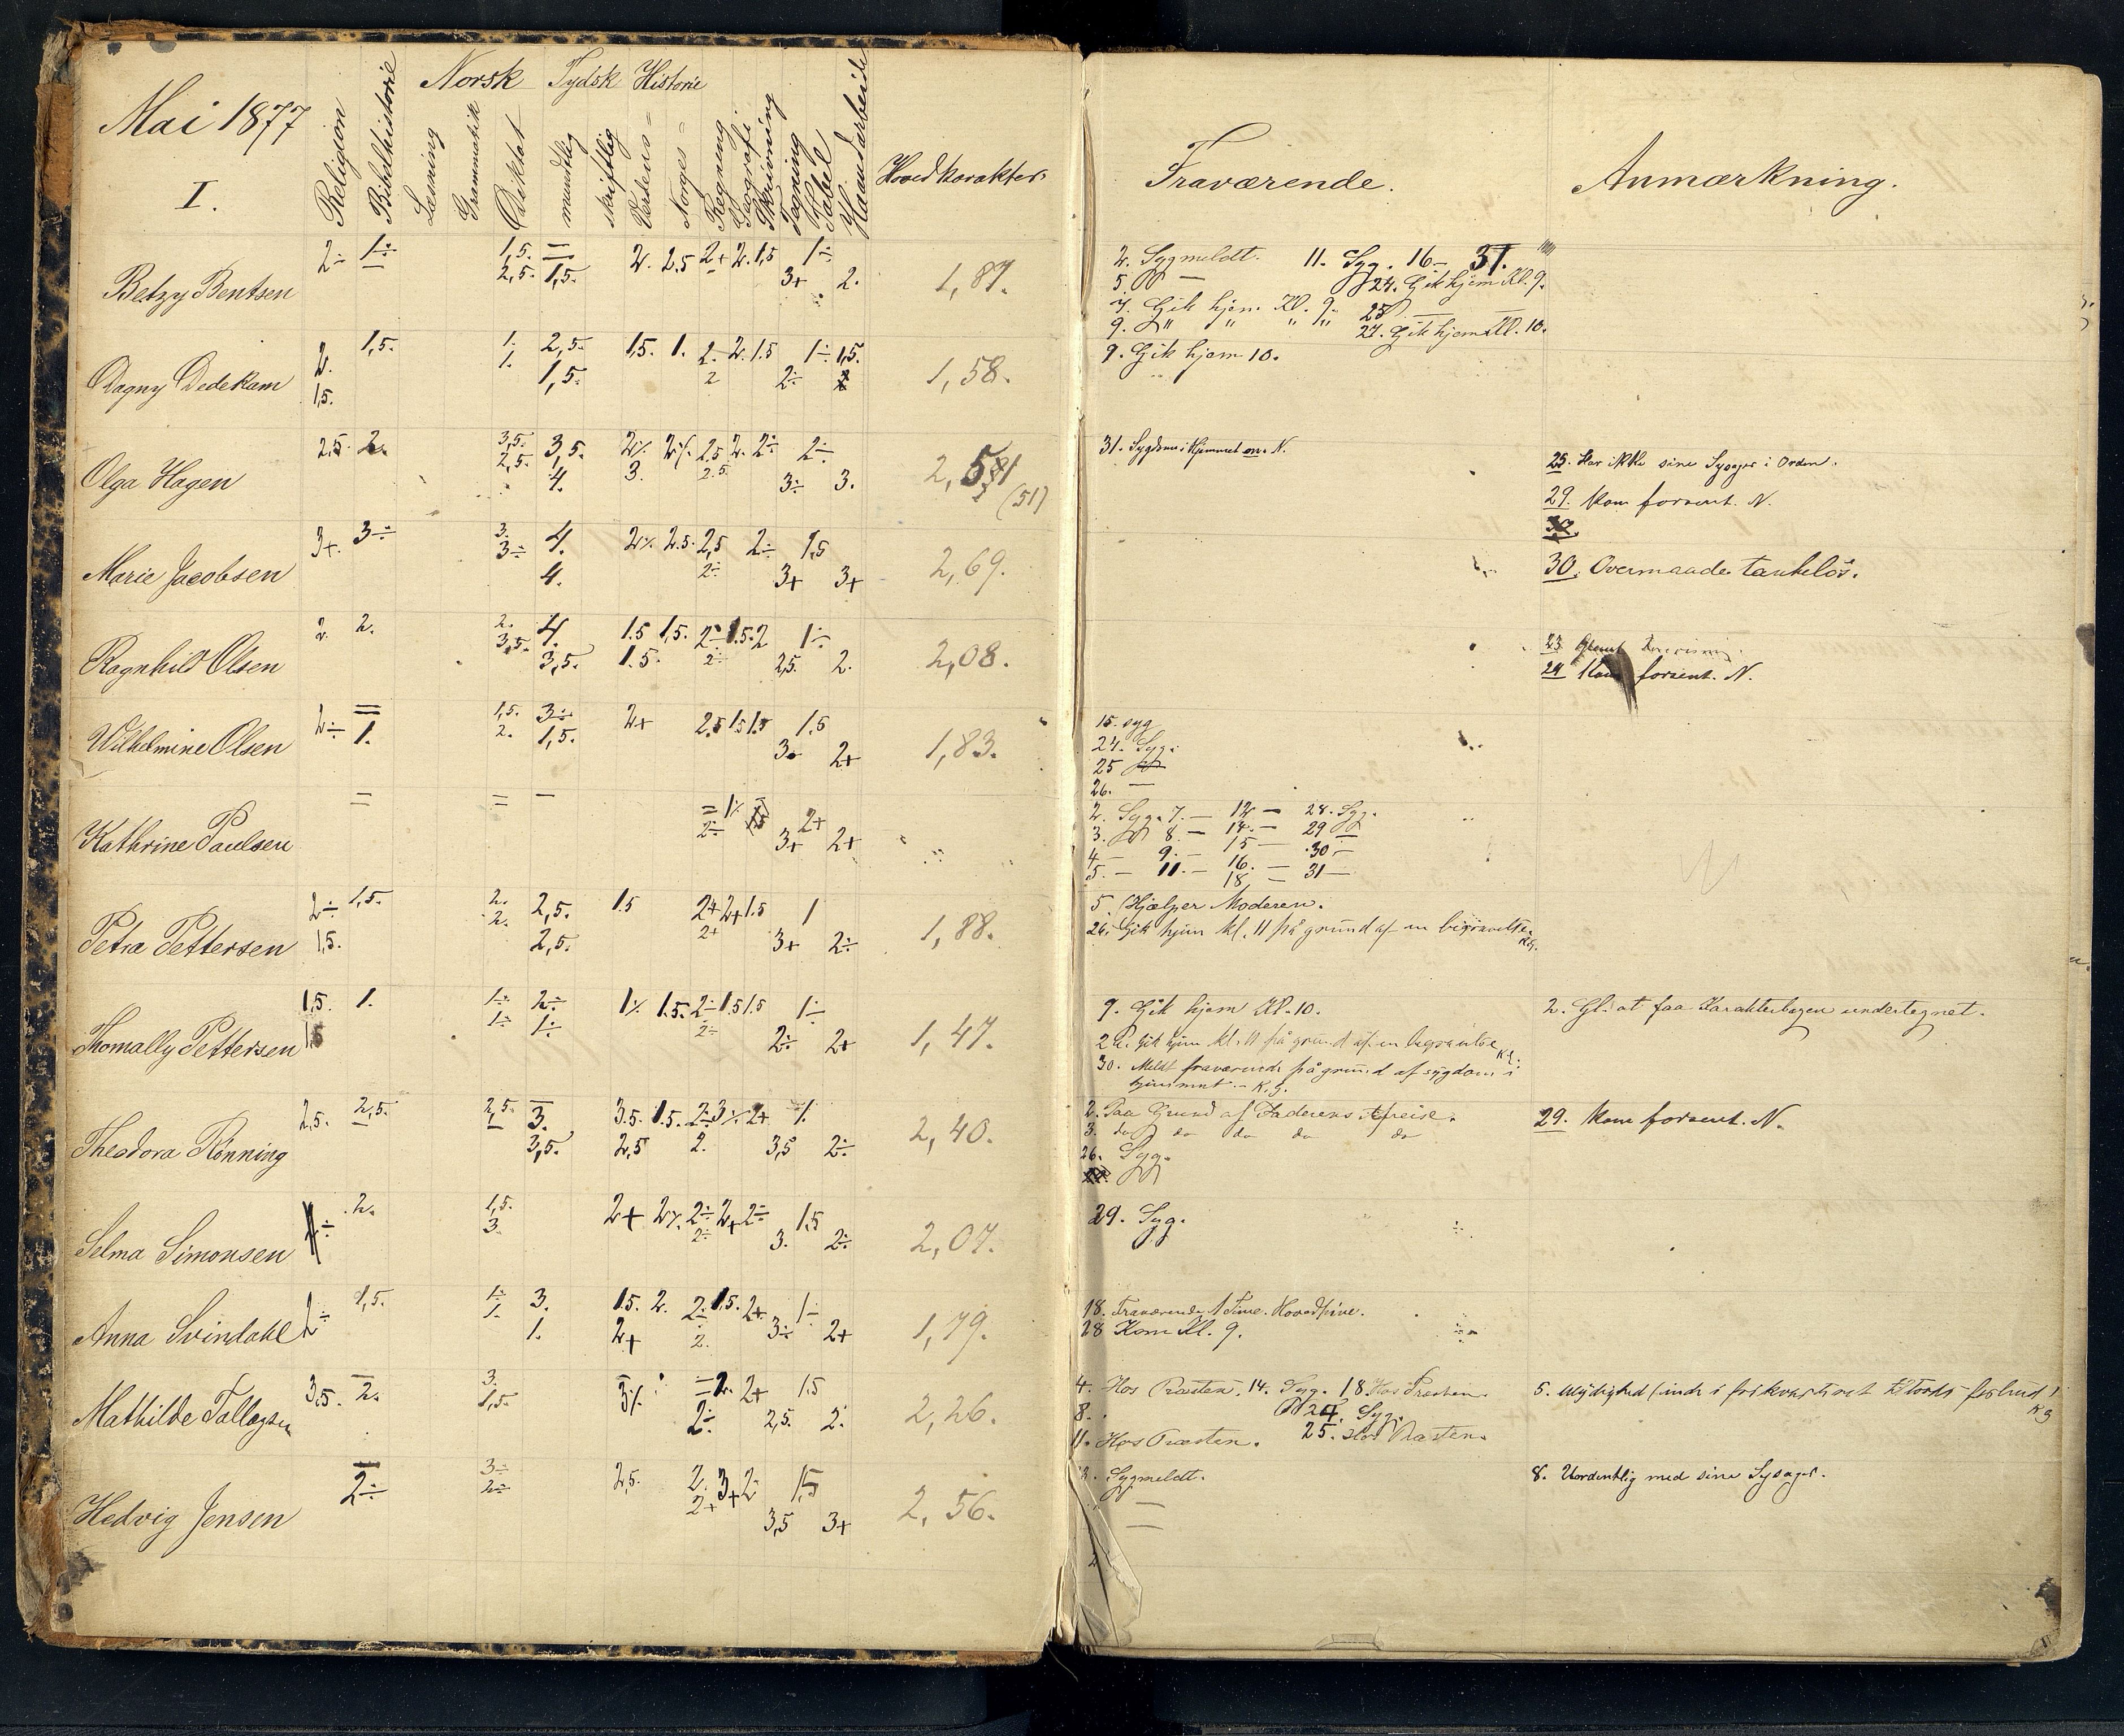 Mai 1877
I.
Religion
Bibelhistorie
Norsk
Læsning
Grammatik
Diktat
Tydsk
mundtlig
skriftlig
Historie
Verdens=
Norges=
Regning
Geografi
Skrivning
Tegning
Tabel
Haandarbeide
Hovedkarakter.
Fraværende.
Anmærkning.
Betzy Bentsen 2÷ 1÷ 1,5. 2. 2.5 2+ 2. 1,5 1÷
2,5. 1,5. 3+ 2. 1,87.
2. Sygmeldt. 11. Syg. 16 – 31.
5. — 24. Gik hjem Kl. 9.
7. Gik hjem Kl. 9. 25 —
9. " " " " 27. Gik hjem Kl. 10.
Dagny Dedekam 2. 1,5. 1. 2,5. 1.5. 1. 2. 2. 1.5 1÷ 1,5.
1,5. 1. 1,5. 2 2÷ 1,58.
9. Gik hjem 10.
Olga Hagen 2,5. 2. 3,5. 3,5. 2% 2% 2,5 2. 2÷ 2÷
2,5. 4. 3. 2.5 3÷ 3. (51)
31. Sygdom i Hjemmet N.
25. Har ikke sine Sysager i Orden.
29. Kom forsent. N.
Marie Jacobsen 3+. 3÷ 3. 4. 2% 2.5. 2,5 2÷ 1.5
3÷ 4. 2÷ 3+ 3+ 2,69.
30. Overmaade tankeløs.
Ragnhild Olsen 2. 2. 2. 4. 1.5 1,5. 2÷ 1.5. 2 1÷
3,5. 3,5. 1.5. 2÷ 2,5. 2. 2,08.
23. Glemt
24 Kom forsent. N.
Wilhelmine Olsen 2÷ 1. 1,5. 3÷ 2+ 2.5 1.5 1.5 1.5
2. 1,5. 3. 2+ 1,83.
15. syg
24. Syg.
25
26. —
Kathrine Paulsen = = — = 1% 2+
2÷ 3+ 2+
2. Syg. 7. — 12 — 28. Syg.
3. 8. — 14. — 29
4 — 9. — 15 — 30 —
5. — 11. — 16. — 31 —
18. —
Petra Pettersen 2÷ 1,5. 2. 2,5. 1.5 2+ 2+ 1.5 1
1,5. 2. 2,5. 2+ 3+ 2÷ 1,88.
5. Hjælper Moderen.
26. Gik hjem kl. 11 på grund af en begravelse K.G.
Thomally Pettersen 1,5. 1. 1÷ 2÷ 1% 1.5. 2÷ 1.5 1.5 1÷
1,5 1÷ 1÷ 2÷ 2÷ 2+ 1,47.
9. Gik hjem Kl. 10.
26. Gik hjem kl. 11 på grund af en begravelse K.G.
30. Meldt fraværende på grund af sygdom i
hjemmet. – K.G.
2. Gl. at faa Karakterbogen undertegnet.
Theodora Rønning 2,5. 2,5. 2,5 3. 3.5. 1.5. 2÷ 3% 2+ 1.
3,5. 2,5 2. 3,5 2÷ 2,40.
2. Paa Grund af Faderens Afreise.
3. do do do do do
26. Syg.
29. Kom forsent. N.
Selma Simonsen 2. 1,5. 2+ 2% 2÷ 2+ 2÷ 1.5
3. 2÷ 3. 2÷ 2,07.
29. Syg.
Anna Svindahl 2÷ 1,5. 1÷ 3. 1.5. 2. 2÷ 1,5. 2+ 1÷
1. 1. 2+ 2. 3÷ 2+ 1,79.
18. Fraværende 1 Time. Hovedpine.
28 Kom Kl. 9.
Mathilde Tallagsen 3,5. 2. 3. 3% 2. 2+ 1.5
1,5. 2÷ 2,5. 2. 2,26.
4. Hos Præsten. 14. Syg. 18. Hos Præsten.
8. 24. Syg.
11. Hos Præsten. 25. Hos Præsten.
5. Ulydighed (inde i frikvarteret forbud) K G
Hedvig Jensen 2÷ 3÷ 2,5. 2. 3+ 2÷ 1,5
2÷ 2+ 3,5 3+ 2,56.
Sygmeldt.
—
—
8. Uordentlig med sine Sysager.